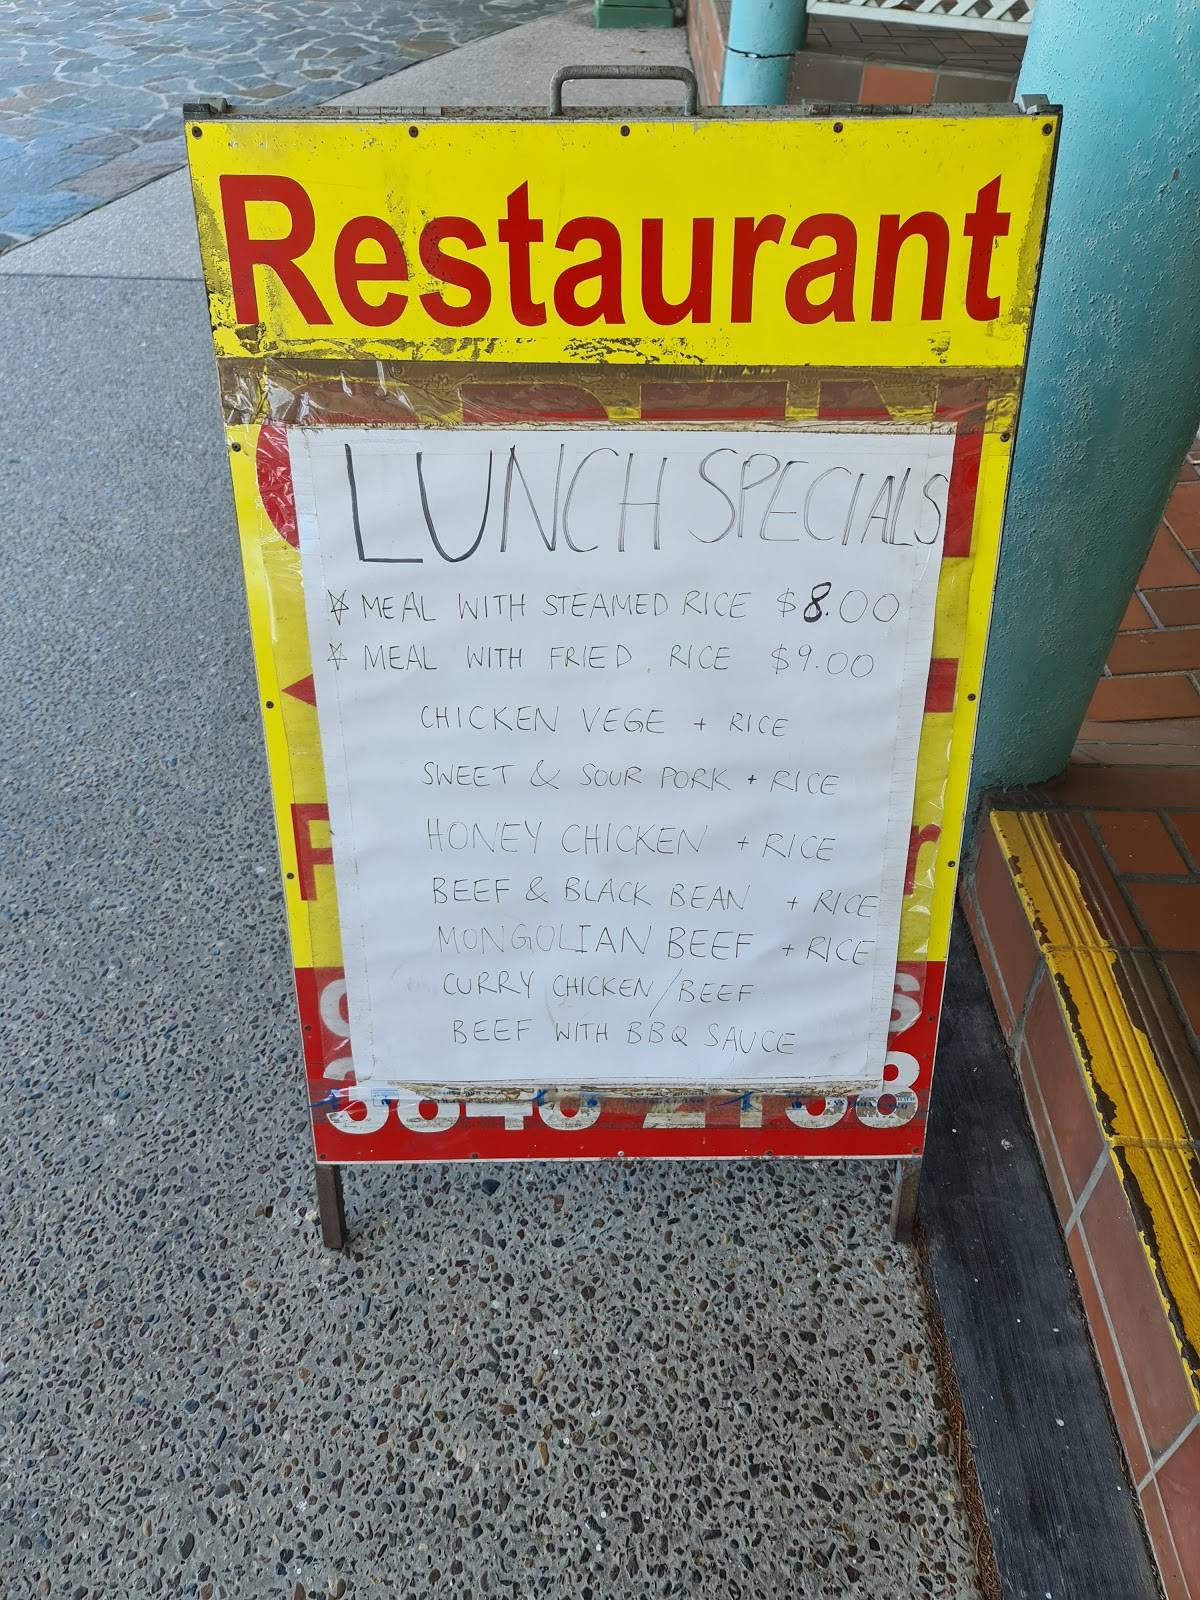 Restaurant
OPEN
LUNCH SPECIALS
☆ MEAL WITH STEAMED RICE $8.00
☆ MEAL WITH FRIED RICE $9.00
CHICKEN VEGE + RICE
SWEET & SOUR PORK + RICE
HONEY CHICKEN + RICE
BEEF & BLACK BEAN + RICE
MONGOLIAN BEEF + RICE
CURRY CHICKEN/BEEF
BEEF WITH BBQ SAUCE